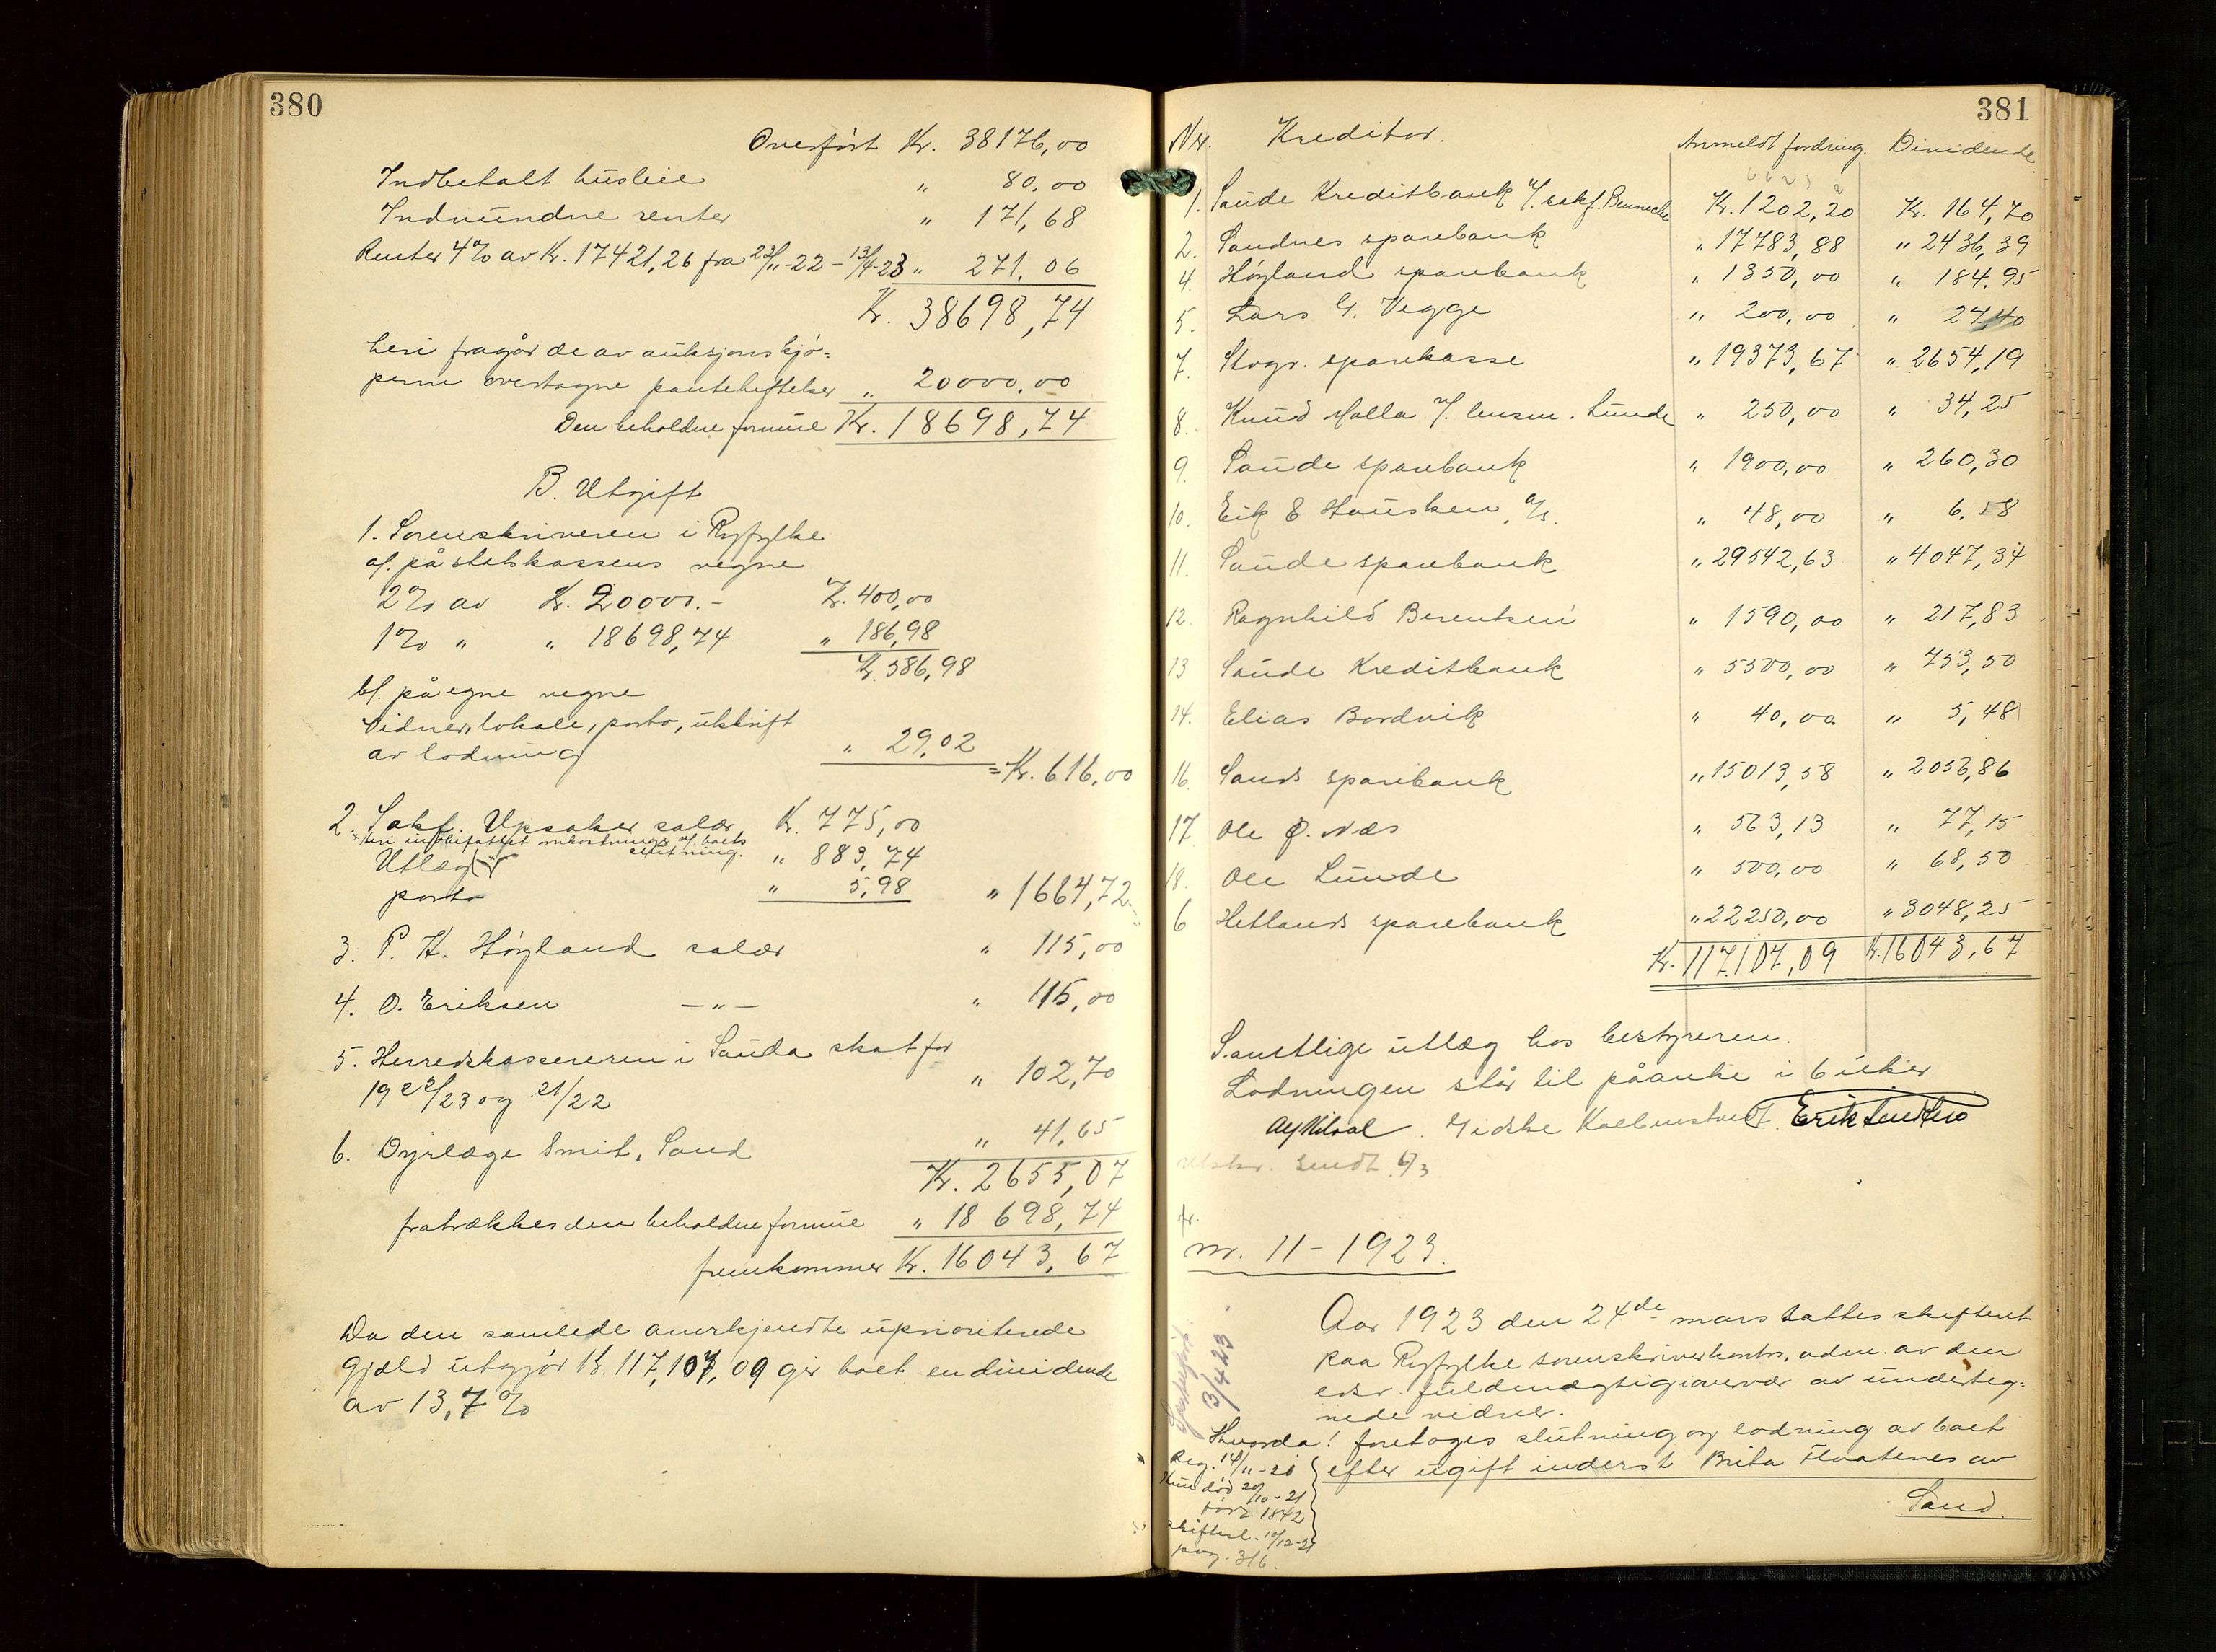 380
Overført Kr. 38176,00
Indbetalt husleie " 80,00
Indvundne renter " 171,68
Renter 4% av Kr. 17421,26 fra 23/11-22 - 13/4-23 " 271,06
Kr. 38698,74
heri fragår de av auksjonskjø-
perne overtagne panteheftelser " 20000,00
Den beholdne formue Kr. 18698,74
B. Utgift
1. Sorenskriveren i Ryfylke
a/. på statskassens vegne
2% av Kr. 20000.- Kr. 400,00
1% " " 18698,74 " 186,98
Kr. 586,98
b/. på egne vegne
Vidner, lokale, porto, utskrift
av lodning " 29,02 = Kr. 616,00
2. Sakf. Upsaker salær Kr. 775,00
heri indbefattet omkostninger v/. boets
slutning.
Utlæg " 883,74
porto " 5,98 " 1664,72
3. P. K. Høyland salær " 115,00
4. O. Eriksen — " — " 115,00
5. Herredskassereren i Sauda skat for
1922/23 og 21/22 " 102,70
6. Dyrlæge Smit, Sand " 41,65
Kr. 2655,07
fratrækkes den beholdne formue " 18698,74
fremkommer Kr. 16043,67
Da den samlede anerkjendte upriorterede
gjæld utgjør K. 117,107,09 gir boet en dividende
av 13,7%
381
Nr. Kreditor. Anmeldt fordring. Dividende
1. Saude Kreditbank v/. sakf. Bennecke Kr. 1202,20 Kr. 164,70
2. Sandnes sparebank " 17783,88 " 2436,39
4. Høyland sparebank " 1350,00 " 184,95
5. Lars G. Vegge " 200,00 " 27,40
7. Stvgr. sparekasse " 19373,67 " 2654,19
8. Knud Molla v/. lensm. Lunde " 250,00 " 34,25
9. Saude sparebank " 1900,00 " 260,30
10. Eik & Hausken, a/s. " 48,00 " 6,58
11. Saude sparebank " 29542,63 " 4047,34
12. Ragnhild Berentsen " 1590,00 " 217,83
13 Saude Kreditbank " 5500,00 " 753,50
14. Elias Bordvik " 40,00 " 5,48
16. Sands sparebank " 15013,58 " 2056,86
17 Ole Ø. Næs " 563,13 " 77,15
18. Ole Lunde " 500,00 " 68,50
6 Hetlands sparebank " 22250,00 " 3048,25
Kr. 117107,09 Kr. 16043,67
Samtlige utlæg hos bestyreren.
Lodningen står til påanke i 6 uker
Gidske Kolbenstvedt. Erik
Utskr. sendt 6/3
nr. 11 - 1923.
Aar 1923 den 24de mars sattes skifteret
paa Ryfylke sorenskriverkontor, adm. av den
edsv. fuldmægtig i overvær av underteg-
nede vidner.
Hvorda! foretoges slutning og lodning av boet
efter ugift inderst Brita Flaatenes av
Sand.
3/4 23
Reg. 14/11-21
Hun død 20/10-21
født 1842
skiftesl. 10/12-21
pag. 316.